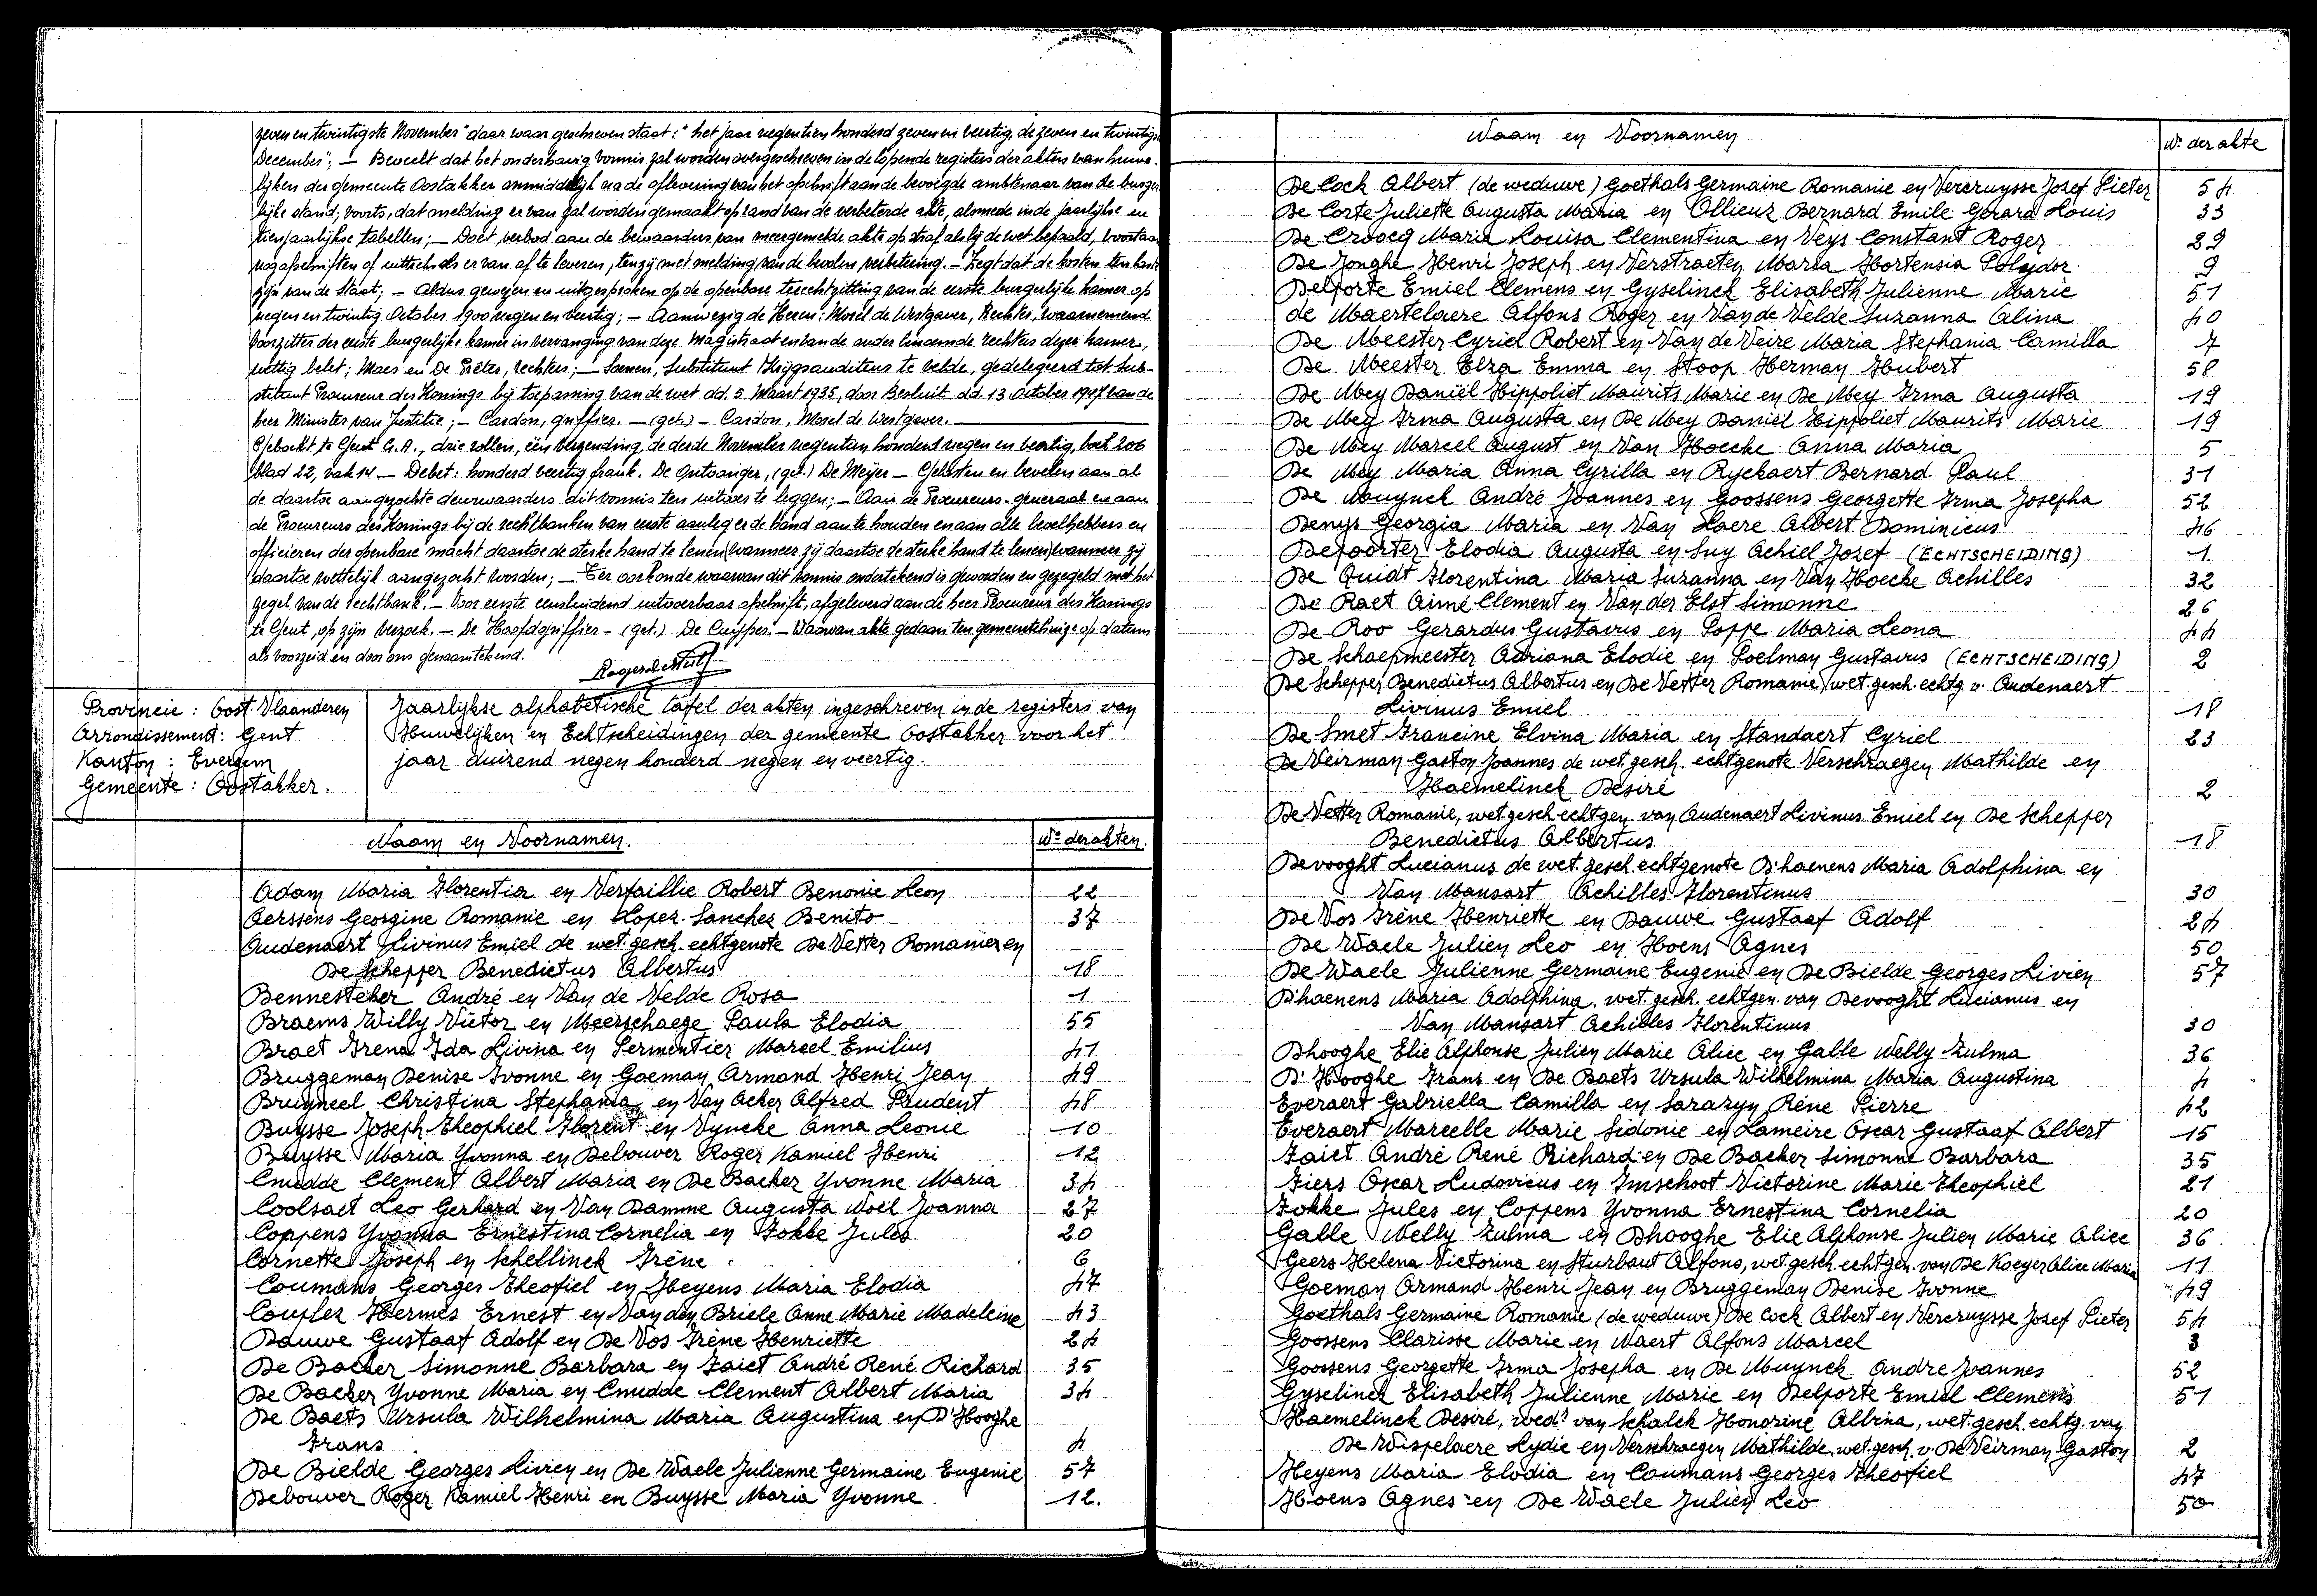 zeven en twintigste November" daar waar geschreven staat: "het jaar negentien honderd zeven en veertig, de zeven en twintigste
December"; — Beveelt dat het onderhavig vonnis zal worden overgeschreven in de lopende registers der akten van huwe-
lijken der gemeente Oostakker onmiddelijk na de aflevering van het afschrift aan de bevoegde ambtenaar van de burger
lijke stand; voorts, dat melding er van zal worden gemaakt op rand van de verbeterde akte, alsmede in de jaarlijkse en
tienjaarlijkse tabellen; — Doet verbod aan de bewaarders van meergemelde akte op straf als bij de wet bepaald, voortaan
nog afschriften of uittreksels er van af te leveren, tenzij met melding van de bevolen verbetering. — Zegt dat de kosten ten laste
zijn van de Staat; — Aldus gewezen en uitgesproken op de openbare terechtzitting van de eerste burgerlijke kamer op
negen en twintig October 1900 negen en veertig; — Aanwezig de Heren: Morel de Westgaver, Rechter, waarnemend
Voorzitter der eerste burgerlijke kamer in vervanging van deze Magistraat en van de ander dienende rechters dezer kamer,
wettig belet; Maes en De Pîeter, rechters; — Soenen, Substituut Krijgsauditeur te velde, gedelegeerd tot Sub-
stituut Procureur des Konings bij toepassing van de wet dd. 5. Maart 1935, door Besluit dd. 13 October 1947 van de
heer Minister van Justitie; — Cardon, griffier. — (get.) — Cardon, Morel de Westgaver.
Geboekt te Gent G.A., drie rollen, één verzending, de derde November negentien honderd negen en veertig, boek 206
blad 22, vak 14 — Debet: honderd veertig frank. De Ontvanger, (get.) De Meijer — Gelasten en bevelen aan al
de daartoe aangezochte deurwaarders dit vonnis ten uitvoer te leggen; — Aan de Procureurs-generaal en aan
de Procureurs des Konings bij de rechtbanken van eerste aanleg er de hand aan te houden en aan alle bevelhebbers en
officieren der openbare macht daartoe de sterke hand te lenen (wanneer zij daartoe de sterke hand te lenen) wanneer zij
daartoe wettelijk aangezocht worden; — Ter oorkonde waarvan dit vonnis ondertekend is geworden en gezegeld met het
zegel van de rechtbank. — Voor eerste eensluidend uitvoerbaar afschrift, afgeleverd aan de heer Procureur des Konings
te Gent, op zijn verzoek. — De Hoofdgriffier — (get.) De Cuyper. — Waarvan akte gedaan ten gemeentehuize op datum
als voorzeid en door ons genaamtekend.
Provincie: Oost-Vlaanderen
Arrondissement: Gent
Kanton: Evergem
Gemeente: Oostakker.
Jaarlijkse alphabetische tafel der akten ingeschreven in de registers van
Huwelijken en Echtscheidingen der gemeente Oostakker voor het
jaar duizend negen honderd negen en veertig.
Naam en Voornamen. Nr. der akten.
Adam Maria Florentia en Verfaillie Robert Benonie Leon 22
Aerssens Georgine Romanie en Lopez-Sanchez Benito 37
Audenaert Livinus Emiel de wet. gesch. echtgenote De Vetter Romanie en
De Schepper Benedictus Albertus 18
Bennesteker André en Van de Velde Rosa 1
Braems Willy Victor en Meerschaege Paula Elodia 55
Braet Irena Ida Livina en Permentier Marcel Emilius 41
Bruggeman Denise Ivonne en Goeman Armand Henri Jean 49
Bruyneel Christina Stephania en Van Acker Alfred Prudent 48
Buysse Joseph Theophiel Florent en Vyncke Anna Leonie 10
Buysse Maria Yvonna en Debouver Roger Kamiel Henri 12
Cnudde Clement Albert Maria en De Backer Yvonne Maria 34
Coolsaet Leo Gerhard en Van Damme Augusta Noël Joanna 27
Coppens Yvonna Ernestina Cornelia en Fokke Jules 20
Cornette Joseph en Schellinck Irène 6
Coumans Georges Theofiel en Heyens Maria Elodia 47
Coupler Hermes Ernest en Van den Briele Anne Marie Madeleine 43
Dauwe Gustaaf Adolf en De Vos Irène Henriette 24
De Backer Simonne Barbara en Faiet André René Richard 35
De Backer Yvonne Maria en Cnudde Clement Albert Maria 34
De Baets Ursula Wilhelmina Maria Augustina en D'Hooghe
Frans 4
De Bielde Georges Livien en De Waele Julienne Germaine Eugenie 57
Debouver Roger Kamiel Henri en Buysse Maria Yvonne. 12.
Naam en Voornamen Nr. der akte
De Cock Albert (de weduwe) Goethals Germaine Romanie en Vercruysse Jozef Pieter 54
De Corte Juliette Augusta Maria en Ollieuz Bernard Emile Gerard Louis 33
De Croocq Maria Louisa Clementina en Veys Constant Roger 29
De Jonghe Henri Joseph en Verstraeten Maria Hortensia Polydor 9
Delporte Emiel Clemens en Gyselinck Elisabeth Julienne Marie 51
de Maertelaere Alfons Roger en Van de Velde Suzanna Alina 40
De Meester Cyriel Robert en Van de Veire Maria Stephania Camilla 7
De Meester Elza Emma en Stoop Herman Hubert 58
De Mey Daniël Hippoliet Maurits Marie en De Mey Irma Augusta 19
De Mey Irma Augusta en De Mey Daniël Hippoliet Maurits Marie 19
De Mey Marcel August en Van Hoecke Anna Maria 5
De Mey Maria Anna Cyrilla en Ryckaert Bernard Paul 31
De Muynck André Joannes en Goossens Georgette Irma Josepha 52
Denys Georgia Maria en Van Laere Albert Dominicus 46
Depoorter Elodia Augusta en Suy Achiel Jozef (ECHTSCHEIDING) 1.
De Quidt Florentina Maria Suzanna en Van Hoecke Achilles 32
De Raet Aimé Clement en Van der Elst Simonne 26
De Roo Gerardus Gustavus en Poppe Maria Leona 44
De Schaepmeester Adriana Elodie en Poelman Gustavus (ECHTSCHEIDING) 2
De Schepper Benedictus Albertus en De Vetter Romanie, wet. gesch. echtg. v. Audenaert
Livinus Emiel 18
De Smet Francine Elvina Maria en Standaert Cyriel 23
De Veirman Gaston Joannes de wet gesch. echtgenote Verschraegen Mathilde en
Haemelinck Desiré 2
De Vetter Romanie, wet gesch echtgen. van Audenaert Livinus Emiel en De Schepper
Benedictus Albertus 18
Devooght Lucianus de wet. gesch. echtgenote D'haenens Maria Adolphina en
Van Mansart Achilles Florentinus 30
De Vos Irène Henriette en Dauwe Gustaaf Adolf 24
De Waele Julien Leo en Hoens Agnes 50
De Waele Julienne Germaine Eugenie en De Bielde Georges Livien 57
D'haenens Maria Adolphina, wet. gesch. echtgen. van Devooght Lucianus en
Van Mansart Achilles Florentinus 30
Dhooghe Elie Alphonse Julien Marie Alice en Galle Nelly Zulma 36
D'Hooghe Frans en De Baets Ursula Wilhelmina Maria Augustina 4
Everaert Gabriella Camilla en Sarazyn Réne Pierre 42
Everaert Marcelle Marie Sidonie en Lameire Oscar Gustaaf Albert 15
Faiet André René Richard en De Backer Simonne Barbara 35
Fiers Oscar Ludovicus en Imschoot Victorine Marie Theophiel 21
Fokke Jules en Coppens Yvonna Ernestina Cornelia 20
Galle Nelly Zulma en Dhooghe Elie Alphonse Julien Marie Alice 36
Geers Helena Victorina en Sturbaut Alfons, wet. gesch. echtgen. van De Koeyer Alice Maria 11
Goeman Armand Henri Jean en Bruggeman Denise Ivonne 49
Goethals Germaine Romanie (de weduwe) De Cock Albert en Vercruysse Jozef Pieter 54
Goossens Clarisse Marie en Naert Alfons Marcel 3
Goossens Georgette Irma Josepha en De Muynck Andre Joannes 52
Gyselinck Elisabeth Julienne Marie en Delporte Emiel Clemens 51
Haemelinck Desiré, wed.r van Schalck Honorine Albina, wet. gesch. echtg. van
De Wispelaere Lydie en Verschraegen Mathilde, wet. gesch. v. De Veirman Gaston 2
Heyens Maria Elodia en Coumans Georges Theofiel 47
Hoens Agnes en De Waele Julien Leo 50